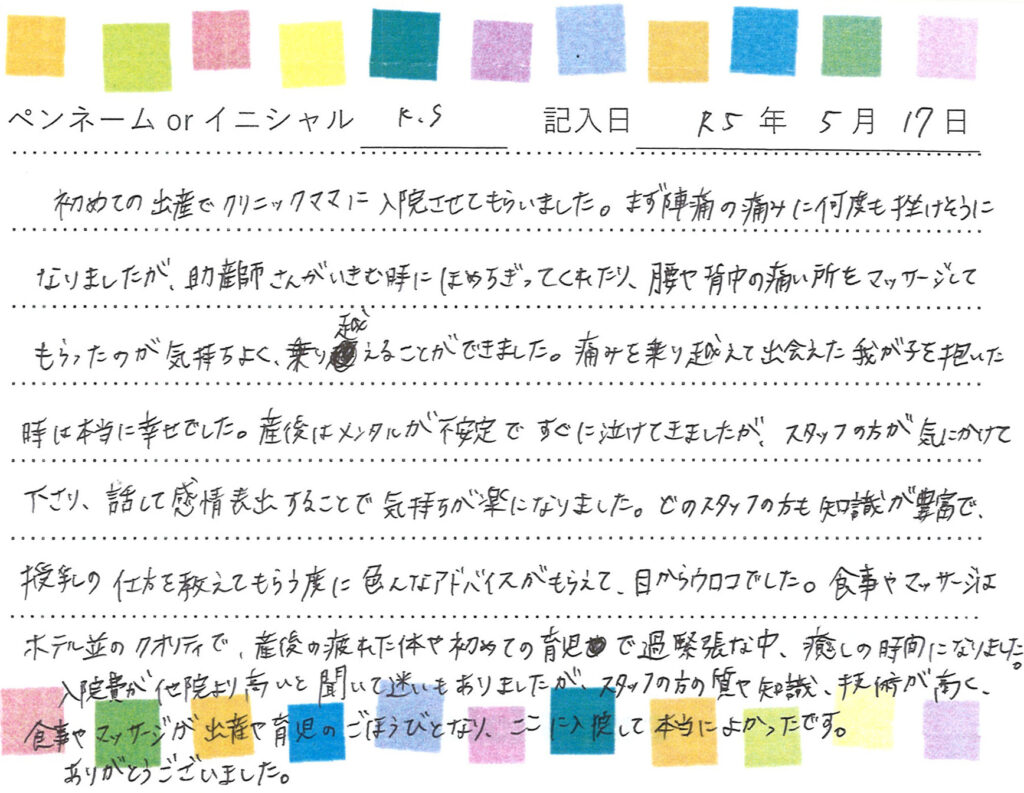 ペンネーム or イニシャル K.S 記入日 R5 年 5 月 17 日
初めての出産でクリニックママに入院させてもらいました。まず陣痛の痛みに何度も挫けそうに
なりましたが、助産師さんがいきむ時にほめちぎってくれたり、腰や背中の痛い所をマッサージして
もらったのが気持ちよく、乗り越えることができました。痛みを乗り越えて出会えた我が子を抱いた
時は本当に幸せでした。産後はメンタルが不安定ですぐに泣けてきましたが、スタッフの方が気にかけて
下さり、話して感情表出することで気持ちが楽になりました。どのスタッフの方も知識が豊富で、
授乳の仕方を教えてもらう度に色んなアドバイスがもらえて、目からウロコでした。食事やマッサージは
ホテル並のクオリティで、産後の疲れた体や初めての育児で過緊張な中、癒しの時間になりました。
入院費が他院より高いと聞いて迷いもありましたが、スタッフの方の質や知識、技術が高く、
食事やマッサージが出産や育児のごほうびとなり、ここに入院して本当によかったです。
ありがとうございました。